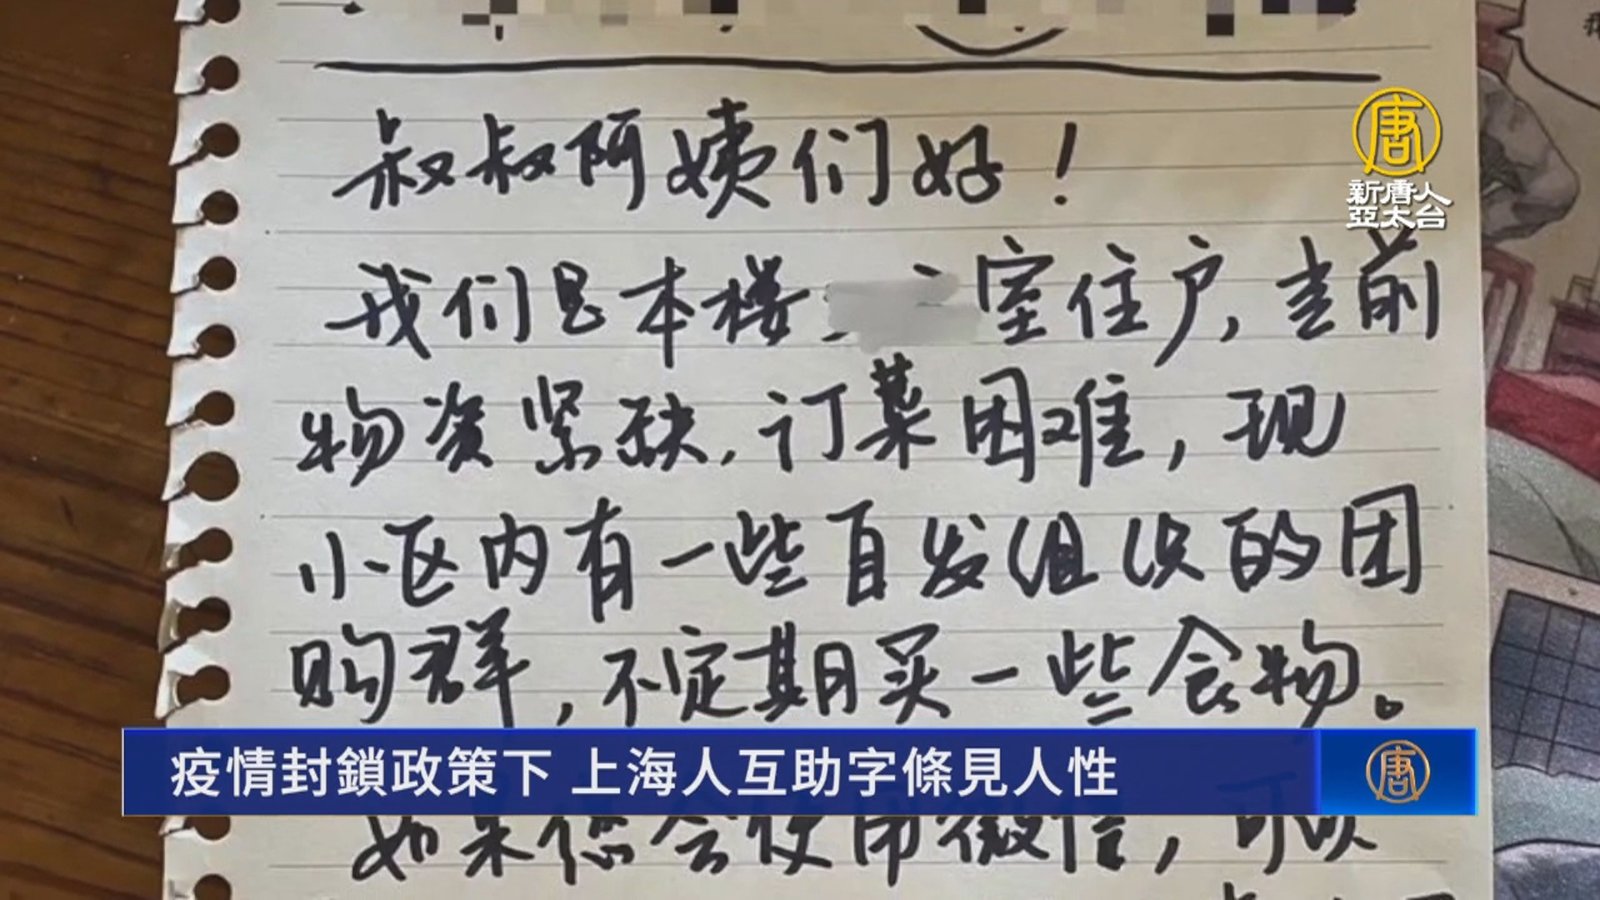 叔叔阿姨们好！
我们是本楼 室住户,当前
物资紧缺,订菜困难,现
小区内有一些自发组织的团
购群,不定期买一些食物。
如果您会使用微信,可以
疫情封鎖政策下 上海人互助字條見人性
唐
新唐人
亞太台
唐